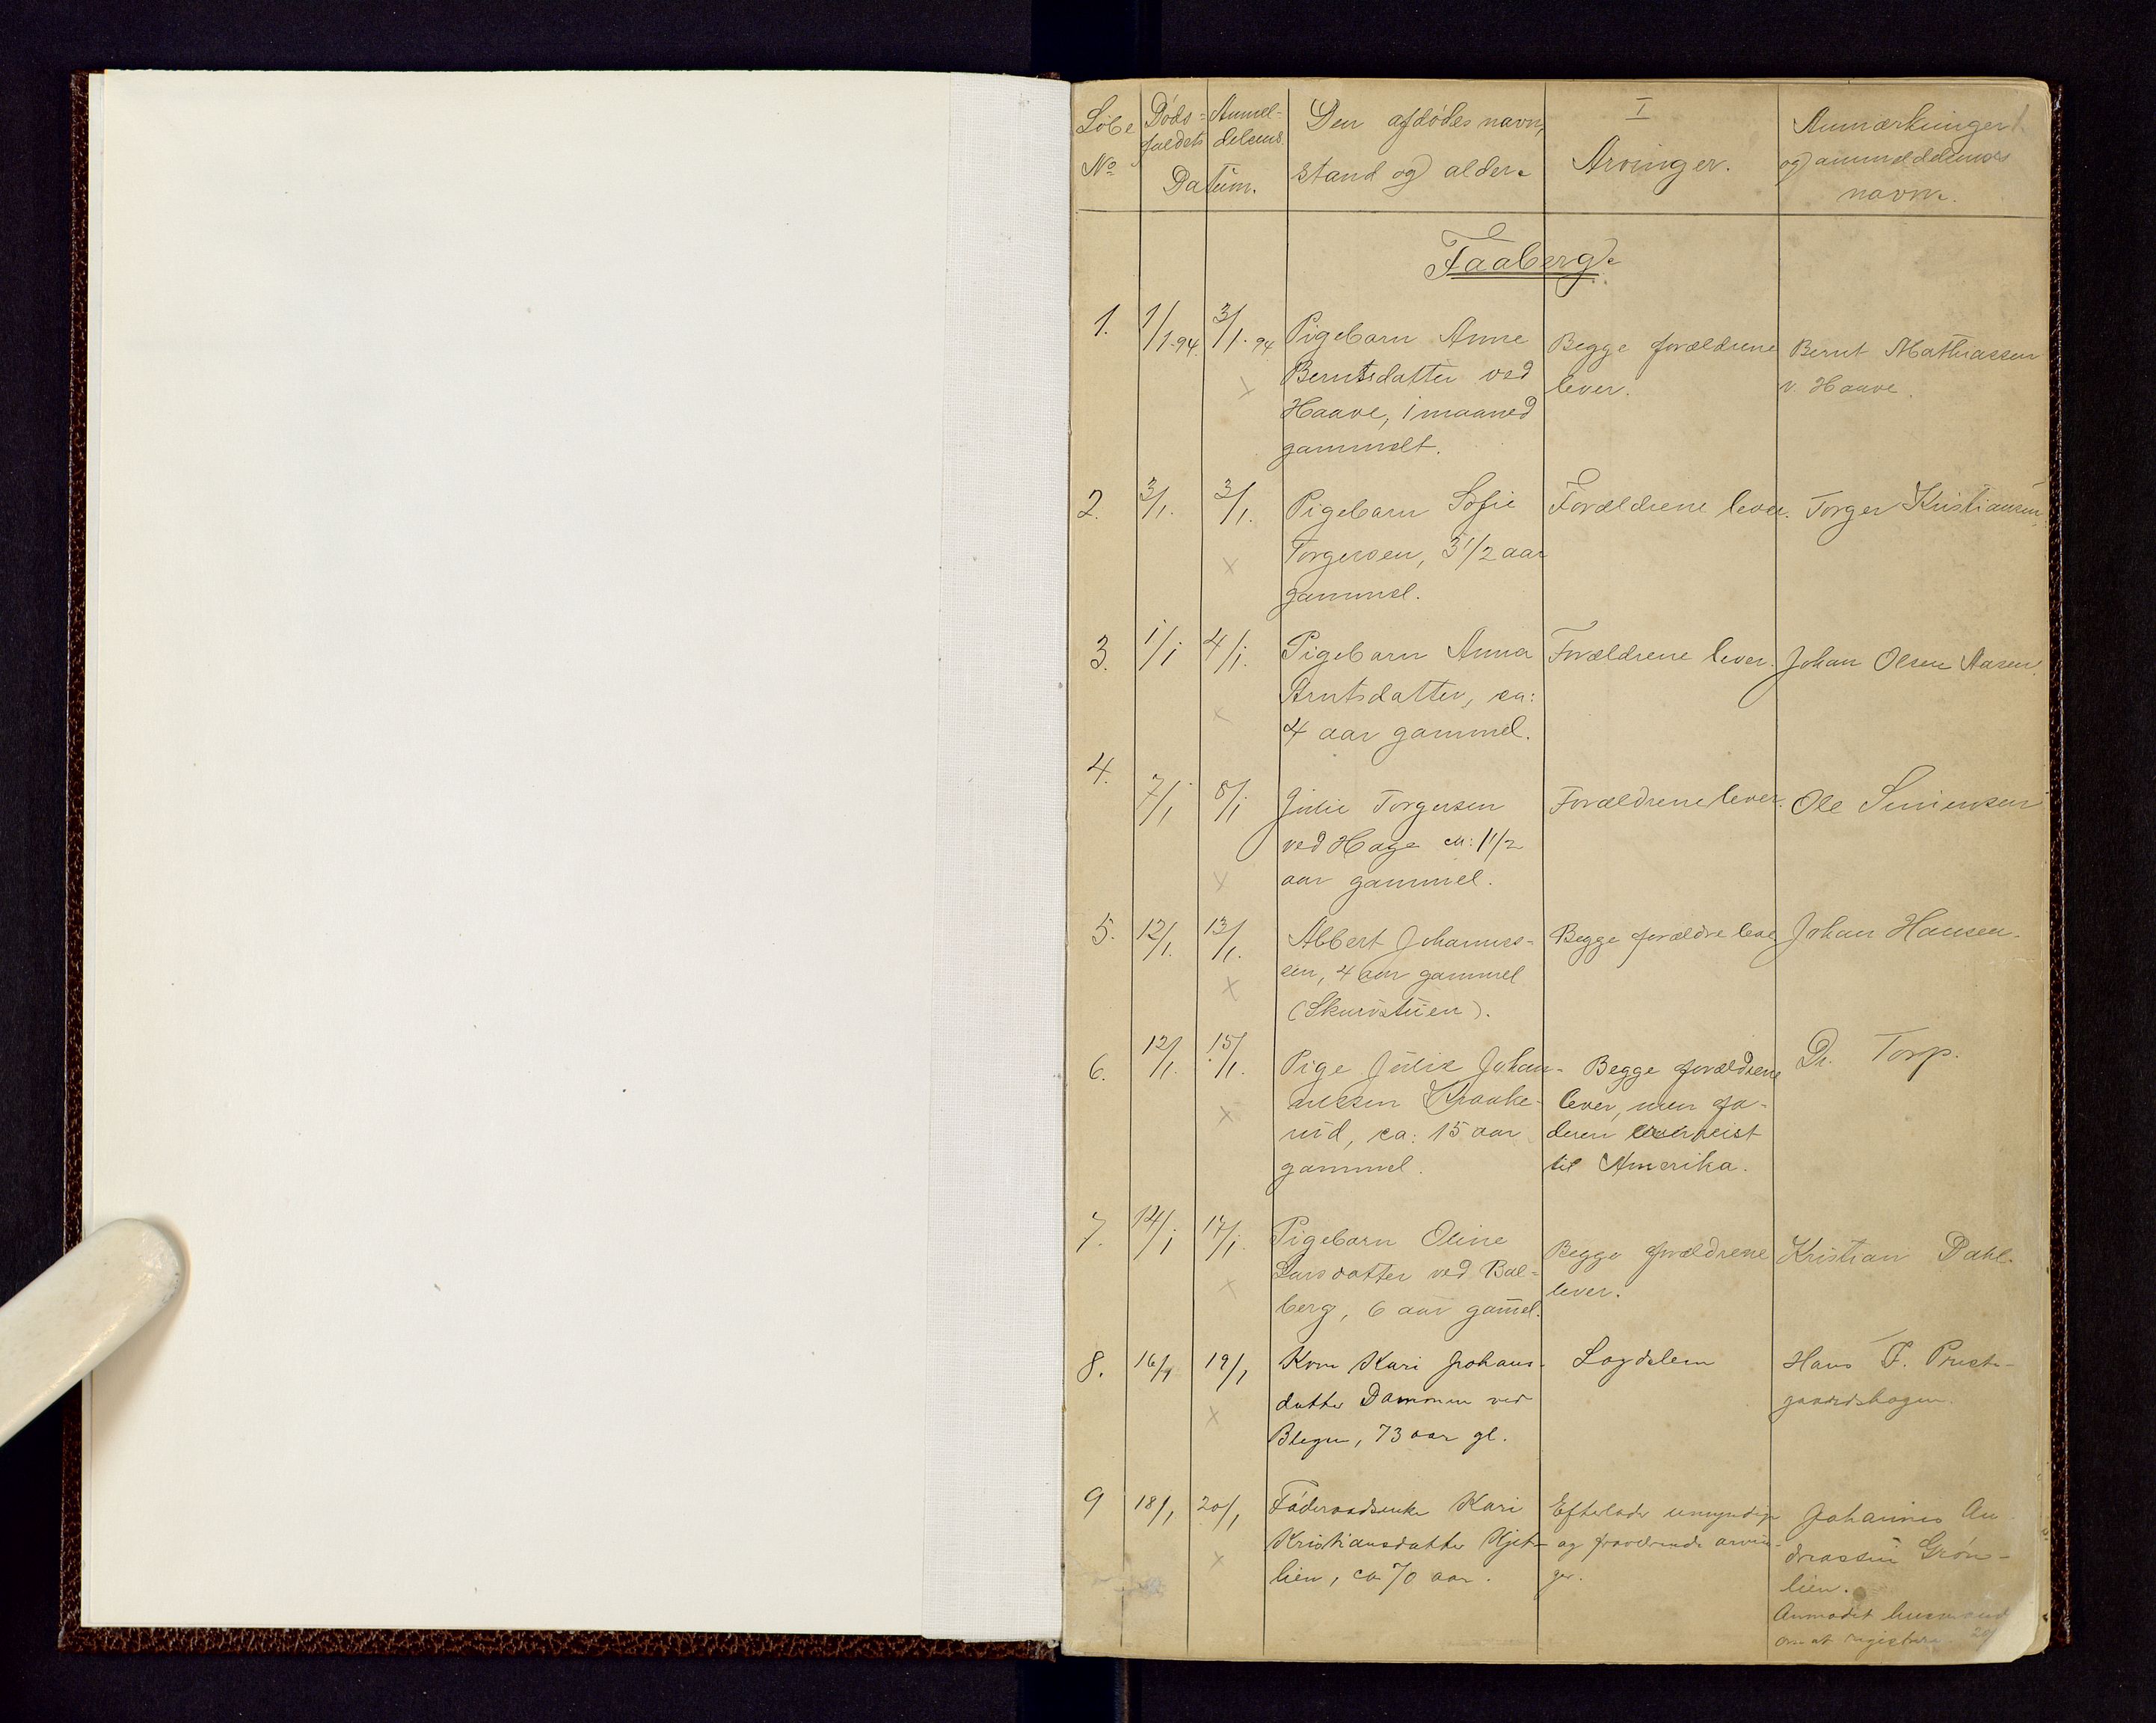 Löbe No
Døds-faldets Anmel-delsens Datum.
Den afdødes navn, stand og alder.
I
Arvinger.
Anmærkninger og anmelderens navn.
Faaberg.
1. 1/1-94. 3/1-94 Pigebarn Anne Begge forældrene Bernt Mathiassen
Berntsdatter ved lever. v. Haave.
Haave, 1 maaned
gammelt.
2. 3/1. 3/1. Pigebarn Sofie Forældrene lever. Torger Kristiansen
Torgersen, 3 1/2 aar
gammel.
3. 1/1 4/1. Pigebarn Anna Forældrene lever. Johan Olsen Aasen.
Arntsdatter, ca:
4 aar gammel.
4. 7/1 8/1 Julie Torgersen Forældrene lever. Ole Simensen
ved Hage ca: 1 1/2
aar gammel.
5. 12/1. 13/1. Albert Johannes- Begge forældre lever Johan Hansen.
sen, 4 aar gammel
(Skurvstuen).
6. 12/1. 15/1. Pige Julie Johan- Begge forældrene Dr. Torp.
nessen Kraake- lever, men fa-
rud, ca: 15 aar deren er reist
gammel. til Amerika.
7. 14/1 17/1. Pigebarn Oline Begge forældrene Kristian Dahl.
Larsdatter ved Bal- lever.
berg, 6 aar gam̄el.
8. 16/1 19/1 Kone Kari Johans- Logdslem Hans F. Prest-
datter Dammen ved gaardshagen.
Blegen, 73 aar gl.
9 18/1 20/1 Føderaadsenke Kari Efterlader umyndige Johannes An-
Kristiansdatter Kjet- og fraværende arvin- dreassen Grøn-
lien, ca 70 aar. ger. lien.
Anmodet
om at registrere